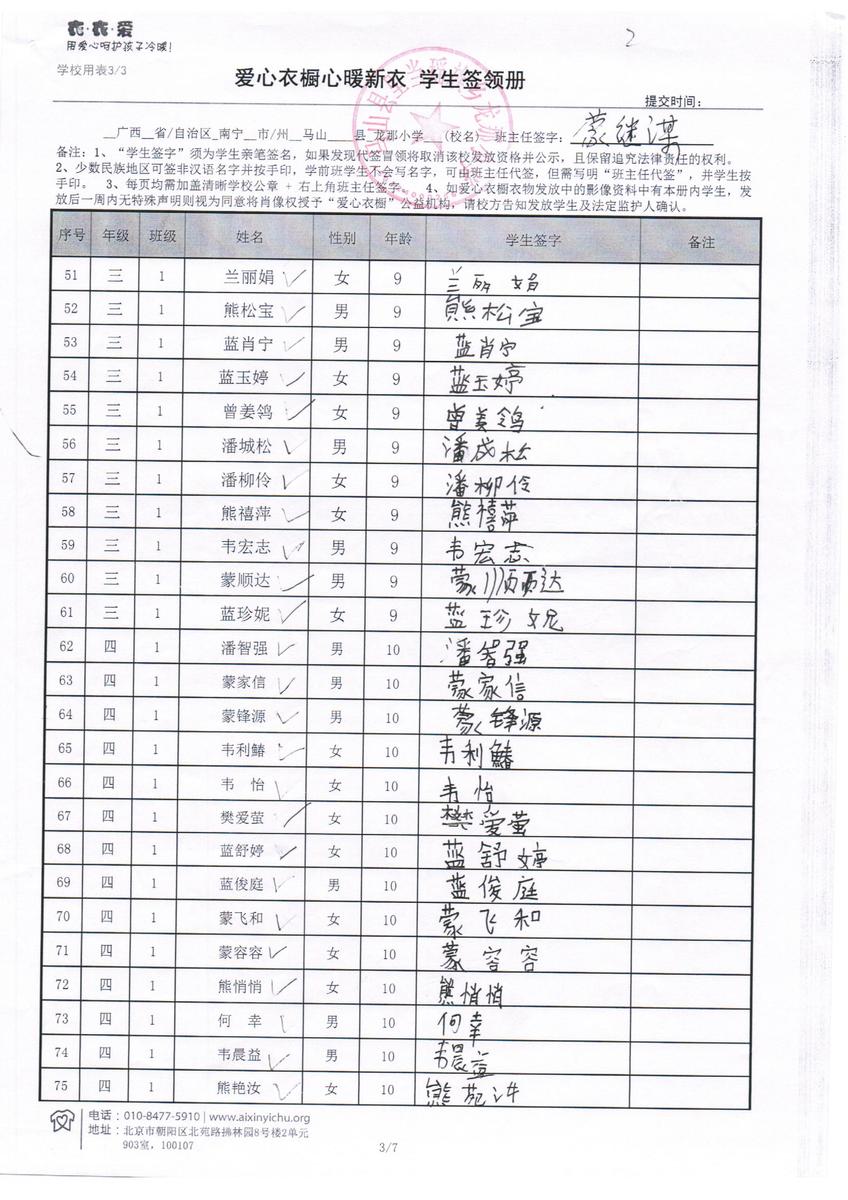 衣·衣·爱
用爱心呵护孩子冷暖!
2
学校用表3/3
爱心衣橱心暖新衣 学生签领册
提交时间:
__广西__省/自治区_南宁__市/州__马山____县_龙那小学__(校名) 班主任签字: 蒙继谋
备注: 1、“学生签字”须为学生亲笔签名, 如果发现代签冒领将取消该校发放资格并公示, 且保留追究法律责任的权利。
2、少数民族地区可签非汉语名字并按手印, 学前班学生不会写名字, 可由班主任代签, 但需写明“班主任代签”, 并学生按
手印。 3、每页均需加盖清晰学校公章 + 右上角班主任签字。 4、如爱心衣橱衣物发放中的影像资料中有本册内学生, 发
放后一周内无特殊声明则视为同意将肖像权授予“爱心衣橱”公益机构, 请校方告知发放学生及法定监护人确认。
序号 年级 班级 姓名 性别 年龄 学生签字 备注
51 三 1 兰丽娟 女 9 兰丽娟
52 三 1 熊松宝 男 9 熊松宝
53 三 1 蓝肖宁 男 9 蓝肖宁
54 三 1 蓝玉婷 女 9 蓝玉婷
55 三 1 曾姜鸰 女 9 曾姜鸰
56 三 1 潘城松 男 9 潘成松
57 三 1 潘柳伶 女 9 潘柳伶
58 三 1 熊禧萍 女 9 熊禧萍
59 三 1 韦宏志 男 9 韦宏志
60 三 1 蒙顺达 男 9 蒙顺达
61 三 1 蓝珍妮 女 9 蓝珍妮
62 四 1 潘智强 男 10 潘智强
63 四 1 蒙家信 男 10 蒙家信
64 四 1 蒙锋源 男 10 蒙锋源
65 四 1 韦利鰆 女 10 韦利鰆
66 四 1 韦 怡 女 10 韦怡
67 四 1 樊爱萤 女 10 樊爱萤
68 四 1 蓝舒婷 女 10 蓝舒婷
69 四 1 蓝俊庭 男 10 蓝俊庭
70 四 1 蒙飞和 女 10 蒙飞和
71 四 1 蒙容容 女 10 蒙容容
72 四 1 熊悄悄 女 10 熊悄悄
73 四 1 何 幸 男 10 何幸
74 四 1 韦晨益 男 10 韦晨益
75 四 1 熊艳汝 女 10 熊
电话: 010-8477-5910 | www.aixinyichu.org
地址: 北京市朝阳区北苑路拂林园8号楼2单元
903室, 100107
3/7